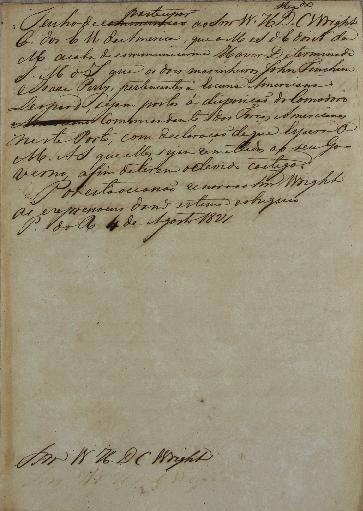 participar
Tenho de communicar ao Snr W. H. D. C. Wright
C. dos E U da America que o M es d'Estado da
M acaba de communicar me haver determinado
S. M. I. que os dois marinheiros John
e Isaac Perry, pertencentes a Escuna Americana
Leopard sejam postos à disposição do Comodoro
Commandante das Forças Americanas
neste Porto, com declaração de que espera O
M. A. I. que elles sejam remettidos ao seu Go
verno, a fim de terem o devido castigo.
Por esta occasião renovo ao Snr Wright
as expressoens da m.a estima e obsequio
P. do R. 4 de Agosto 182
Snr W. H. D C Wright